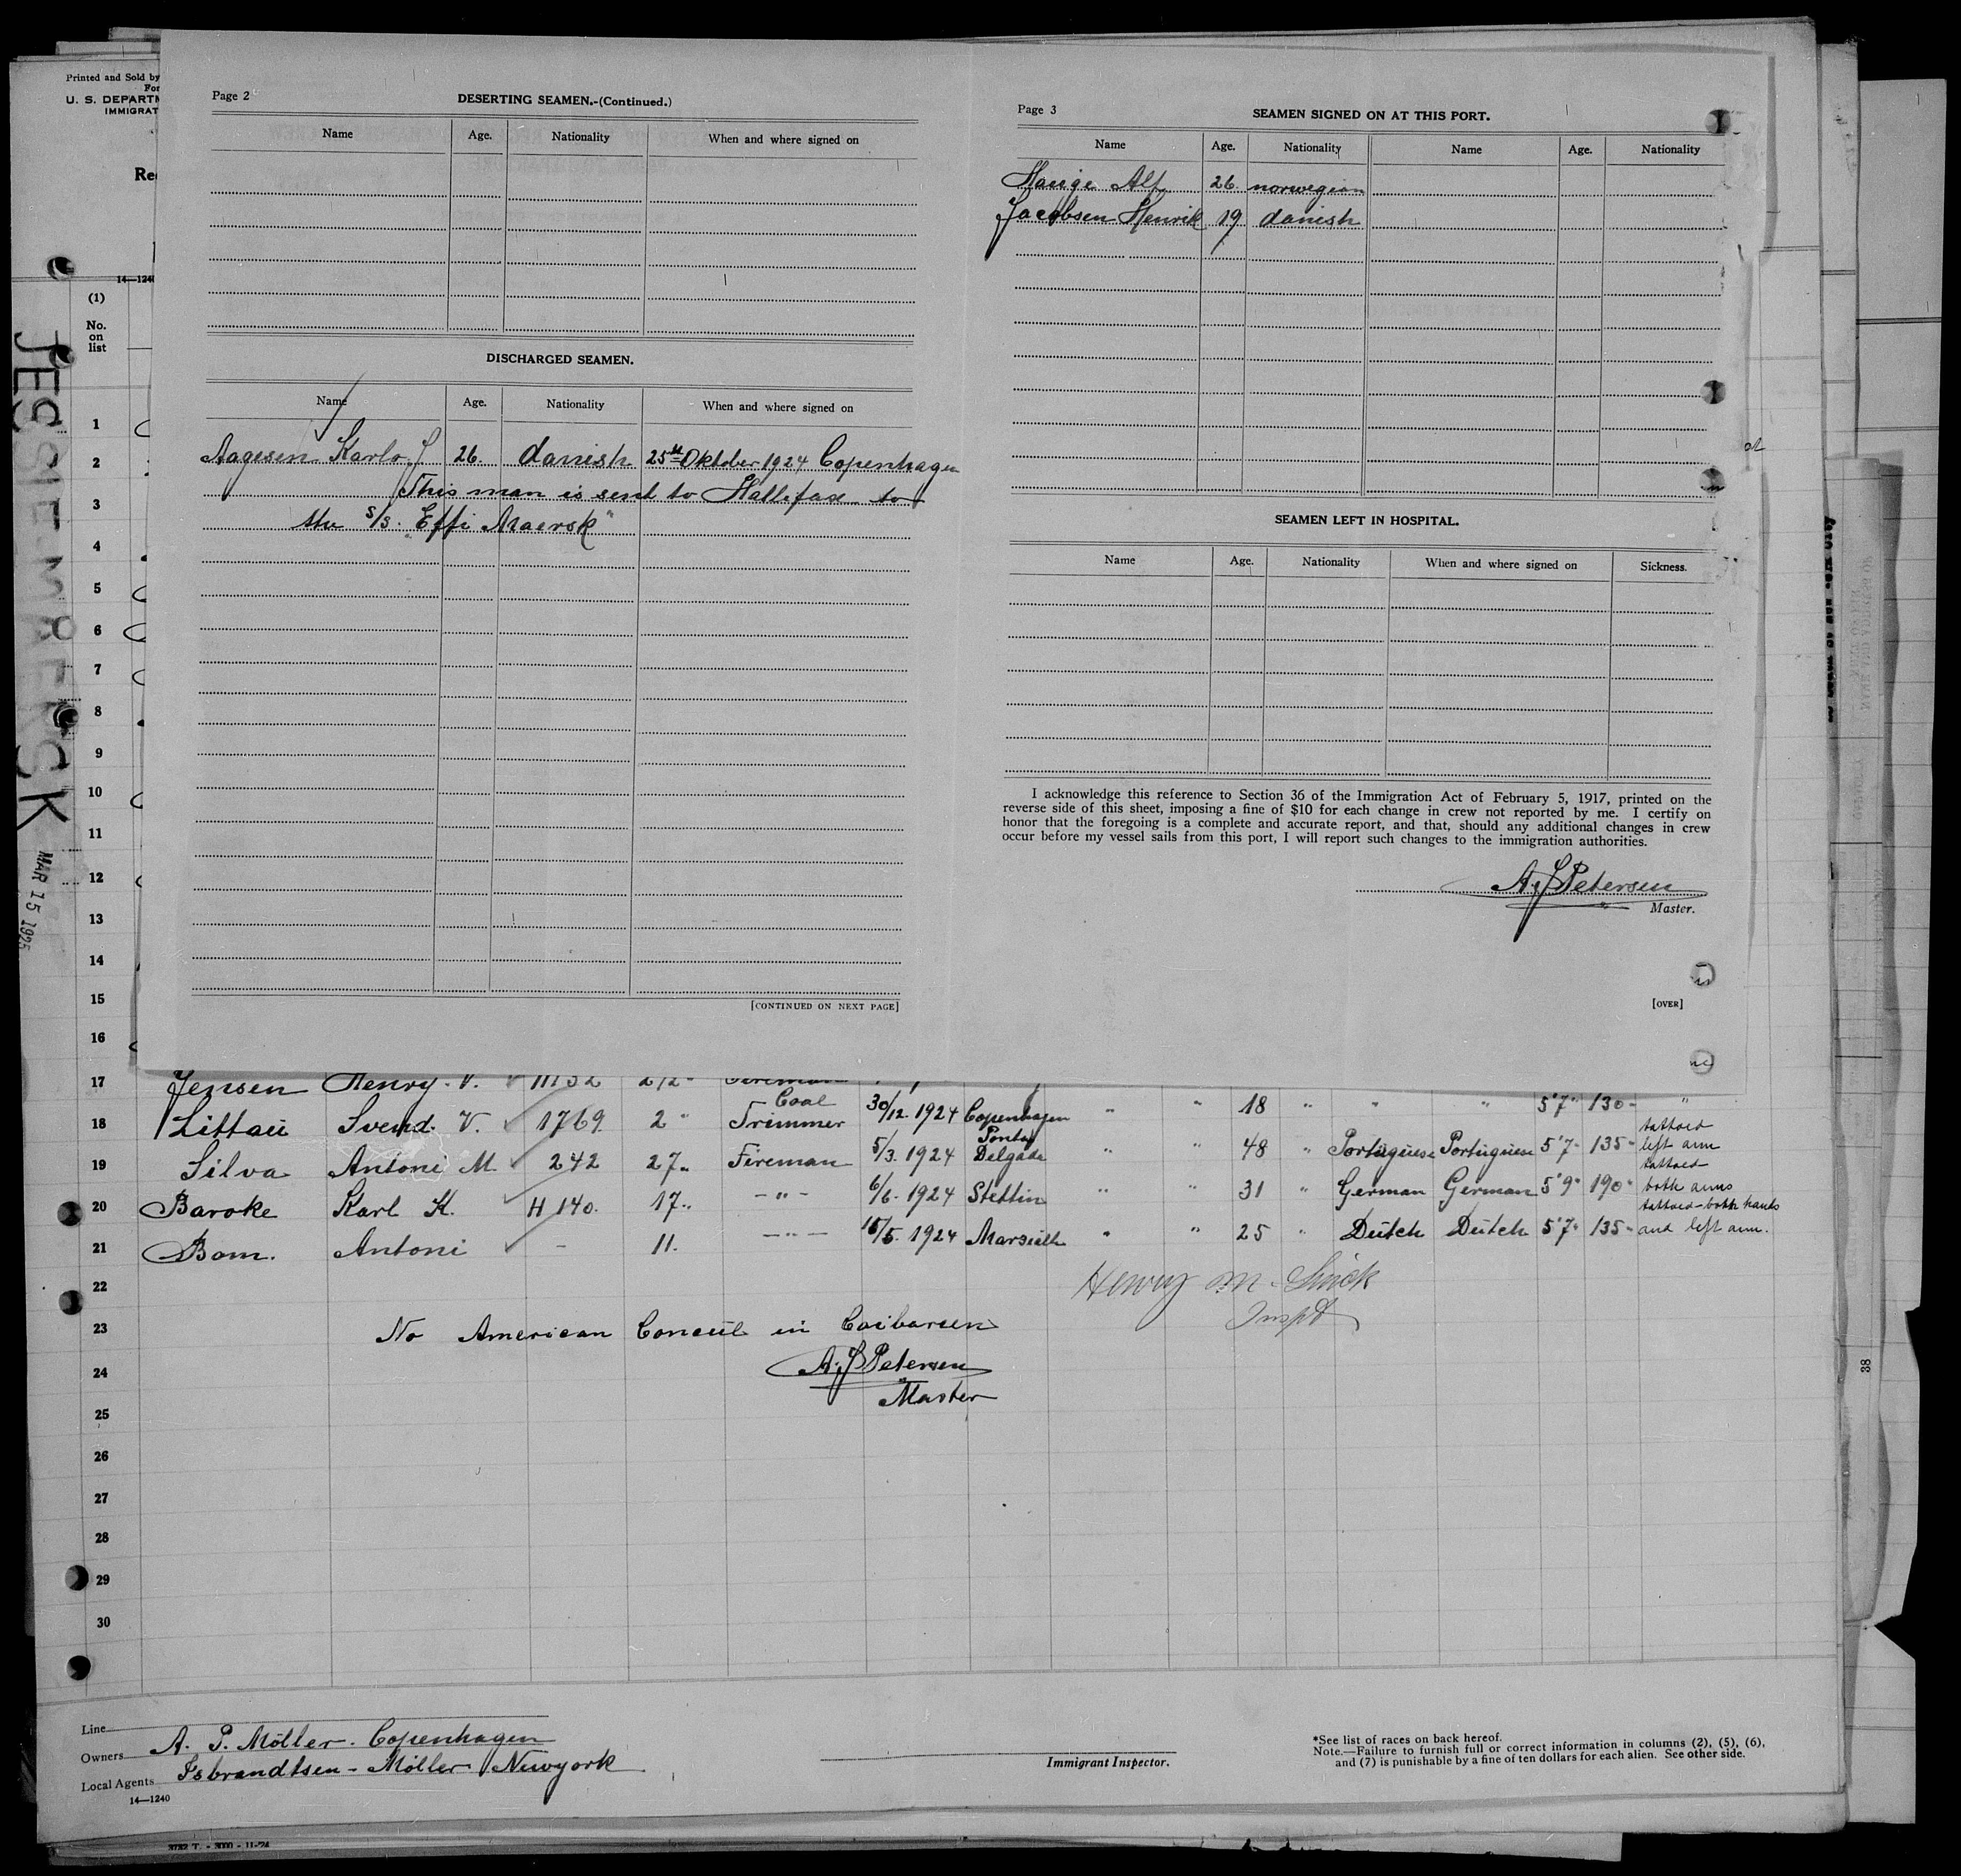 Printed and Sold by
U. S. DEPARTM
IMMIGRAT
14—1240
(1)
No.
on
list
JESSIE MAERSK
MAR 15 1925
Page 2
DESERTING SEAMEN.-(Continued.)
Name Age. Nationality When and where signed on
DISCHARGED SEAMEN.
Name Age. Nationality When and where signed on
Aagesen Karlo J 26. danish 25th Oktober 1924 Copenhagen
This man is sent to Hallifax to
the s/s. "Effi Maersk"
[CONTINUED ON NEXT PAGE]
Page 3
SEAMEN SIGNED ON AT THIS PORT.
Name Age. Nationality Name Age. Nationality
Hauge Alf 26. norwegian
Jacobsen Henrik 19 danish
SEAMEN LEFT IN HOSPITAL.
Name Age. Nationality When and where signed on Sickness.
I acknowledge this reference to Section 36 of the Immigration Act of February 5, 1917, printed on the
reverse side of this sheet, imposing a fine of $10 for each change in crew not reported by me. I certify on
honor that the foregoing is a complete and accurate report, and that, should any additional changes in crew
occur before my vessel sails from this port, I will report such changes to the immigration authorities.
A. J. Petersen
Master.
[OVER]
1
2
3
4
5
6
7
8
9
10
11
12
13
14
15
16
17 Jensen Henry. V.
18 Littau Svend. V. 1769. 2 " Coal Trimmer 30/12. 1924 Copenhagen " " 18 " " " 5'7" 130 - "
19 Silva Antoni M. 242 27 " Fireman 5/3. 1924 Ponta Delgada " " 48 " Portuguese Portuguese 5'7" 135 - tattoed left arm
20 Baroke Karl K. H 140. 17 " - " - 6/6. 1924 Stettin " " 31 " German German 5'9" 190 - tattoed both arms
21 Bom. Antoni - 11. - " - 15/5. 1924 Marseille " " 25 " Dutch Dutch 5'7" 135 - tattoed-both hands and left arm.
22 Henry M.
Inspt
23 No American Concul in Caibarien
24 A. J. Petersen
Master
25
26
27
28
29
30
38
Line
Owners A. P. Möller. Copenhagen
Local Agents Isbrandtsen - Möller Newyork
14—1240
Immigrant Inspector.
*See list of races on back hereof.
Note.—Failure to furnish full or correct information in columns (2), (5), (6),
and (7) is punishable by a fine of ten dollars for each alien. See other side.